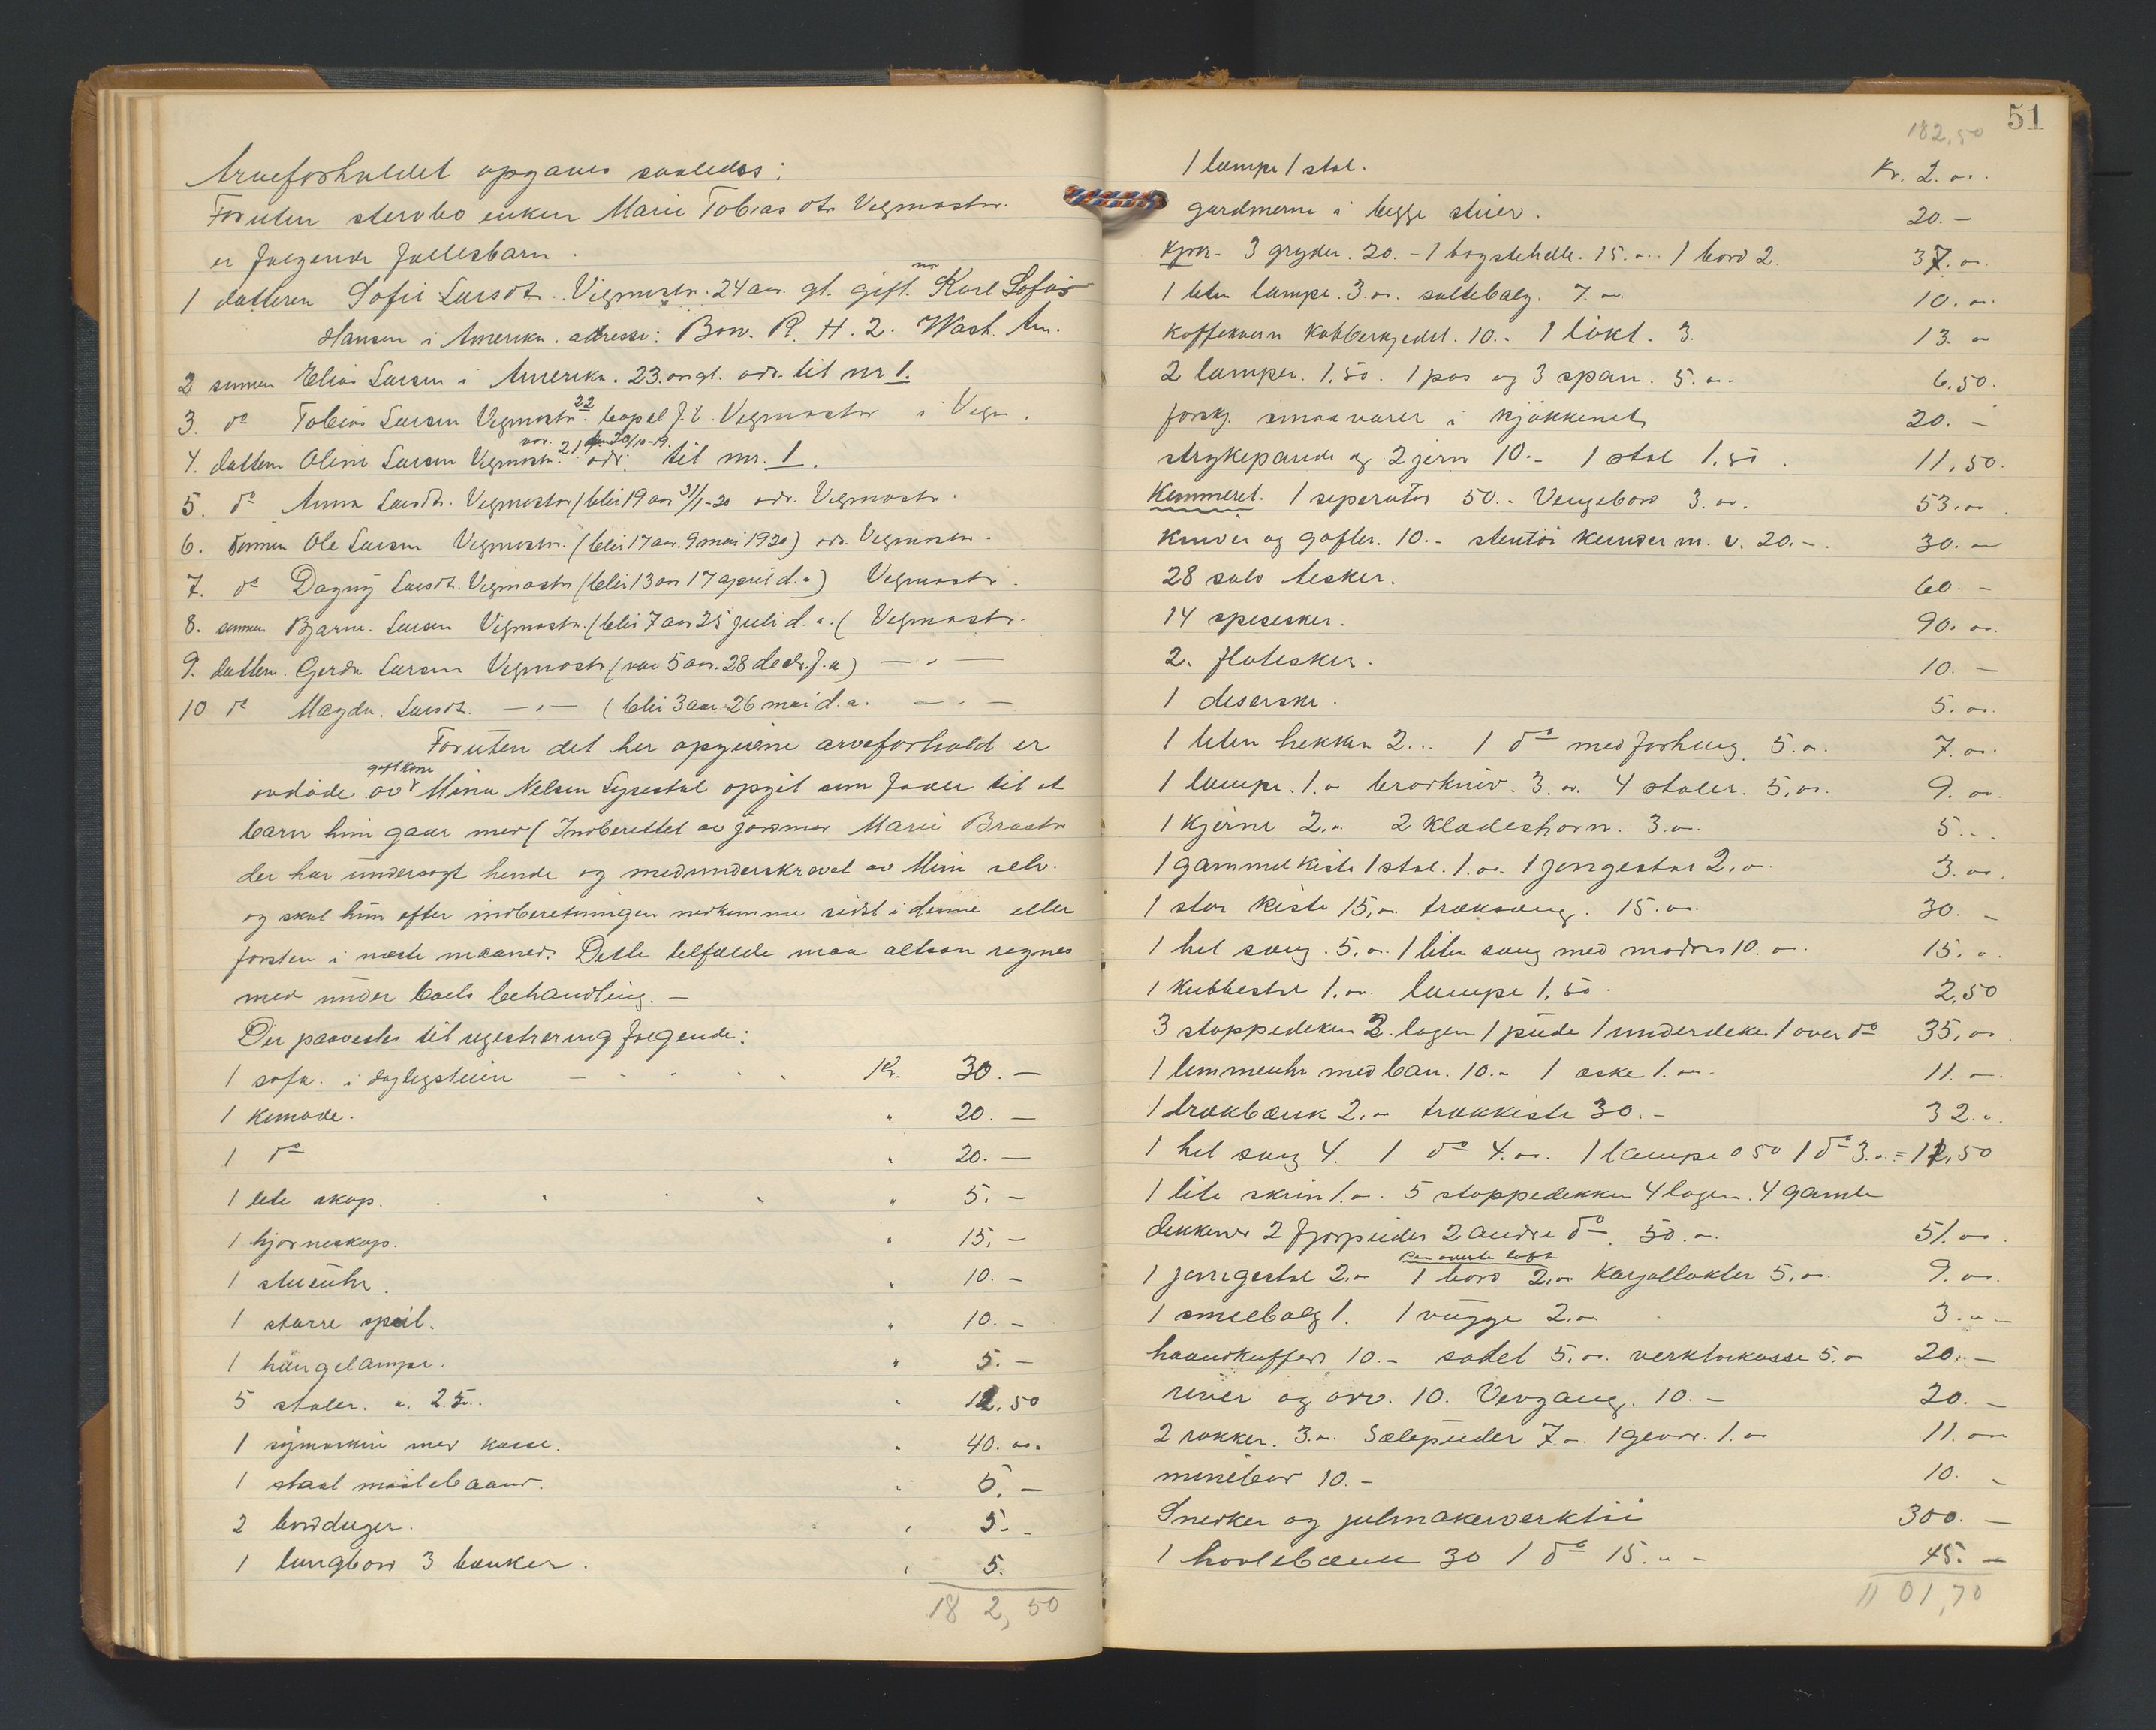 Arveforholdet opgaves saaledes:
Foruten stervbo enken Marie Tobias dtr Vegmostr.
er følgende fællesbarn.
1 datteren Sofie Larsdt. Vigmostr. 24 aar gl. gift m Karl Sofus
Hansen i Amerika. adresse: Bow. R. H. 2. Wash. Am.
2 sønnen Elias Larsen i Amerika. 23 aar gl. adr. til nr 1.
3. do Tobias Larsen Vegmostr. 22 Vegmostr i Vegm.
4. datteren Oline Larsen Vegmostr. var 21 den 20/10-19. adr. til nr. 1.
5. do Anna Larsdt. Vegmostr (blir 19 aar 31/1-20 adr. Vegmostr.
6. sønnen Ole Larsen Vegmostr. (blir 17 aar. 9 mai 1920) adr. Vegmostr.
7. do Dagny Larsdt. Vegmostr (blir 13 aar 17 april d.a) Vegmostr.
8. sønnen Bjarne. Larsen Vigmostr. (blir 7 aar 25 juli d.a. ( Vegmostr.
9. datteren Gerda Larsen Vegmostr (var 5 aar. 28 decbr. f.a) — " —
10 do Magda. Larsdt. — " — (blir 3 aar 26 mai d.a. — " —
Foruten det her opgivne arveforhold er
avdøde av gift kone Mina Nelsen Lysestøl opgit som fader til et
barn hun gaar med (Indberettet av jordmor Marie Brastr
der har undersøgt hende og medunderskrevet av Mina selv.
og skal hun efter indberetningen nedkomme sidst i denne eller
første i næste maaned. Dette tilfælde maa altsaa regnes
med under boets behandling. —
Der paavistes til registrering følgende:
1 sofa. i dagligstuen Kr. 30. —
1 komode. " 20. —
1 do " 20. —
1 lite skap. " 5. —
1 hjørneskap. " 15. —
1 stueuhr. " 10. —
1 større speil. " 10. —
1 hængelampe. " 5. —
5 stoler. a. 2.50. " 12.50
1 symaskin med kasse. " 40. oo.
1 staal maalebaand. " 5. —
2 bordduger. " 5. -
1 langbord 3 bænker. " 5.
182,50
51
182,50
1 lampe 1 stol. Kr. 2. oo.
gardinerne i begge stuer. 20. —
Kjøk. 3 gryder. 20. - 1 bagstehelle. 15. oo. 1 bord 2. 37. oo.
1 liten lampe. 3. oo. saltebalg. 7. oo. 10. oo.
Koffekvern Kobberkjedel. 10. - 1 lokt. 3. 13. oo
2 lamper. 1,50. 1 pas og 3 span. 5. oo. 6,50.
forskj. smaavarer i kjøkkenet 20. —
strykepande og 2 jern 10. - 1 stol 1,50. 11,50.
Kammeret. 1 seperator 50. - Vengebord 3. oo. 53. oo.
kniver og gafler. 10. - stentøi kander m. v. 20. -. 30. oo
28 sølv tesker. 60. —
14 spisesker. 90. oo.
2. fløtesker. 10. —
1 deserske. 5. oo.
1 liten hekken 2. .. 1 do med forheng. 5. oo. 7. oo.
1 lampe. 1. oo brødkniv. 3. oo. 4 stoler. 5. oo. 9. oo.
1 kjerne 2. oo 2 kladeshorn. 3. oo. 5. ..
1 gammel kiste 1 stol. 1. oo. 1 jengestol 2. oo. 3. oo.
1 stor kiste 15. oo. træksæng. 15. oo. 30. —
1 hel sæng. 5. oo. 1 liten sæng med madras 10. oo. 15. oo.
1 kubbestol 1. oo. lampe 1,50. 2,50
3 stoppedeken 2. lagen 1 pude 1 underdeke. 1 over do 35. oo.
1 lommeuhr med baand. 10. - 1 æske 1. oo. 11. oo.
1 drækbænk 2. oo trækkiste 30. - 32. oo.
1 hel sæng 4. 1 do 4. oo. 1 lampe 0 50 1 do 3. oo = 12,50
1 lite skrin 1. oo. 5 stoppedekken 4 lagen. 4 gamle
dekkener 2 fjørpuder 2 andre do. 50. oo. 51. oo.
Paa øverste loft
1 jengestol 2. oo 1 bord 2. oo Karjollokter 5. oo. 9. oo.
1 smiebælg 1. 1 vugge 2. oo 3. oo -
haandkuffert 10. - sadel 5. oo. verktøikasse 5. oo 20. —
river og orv. 10. Vevgang. 10. - 20. —
2 rokker. 3. oo. Sælepuder 7. oo. 1 gevær. 1. oo 11. oo
minebor 10. - 10. -
Snedker og julmakerverktøi 300. —
1 høvlebænk 30 1 do 15. oo - 45. —
1101,70